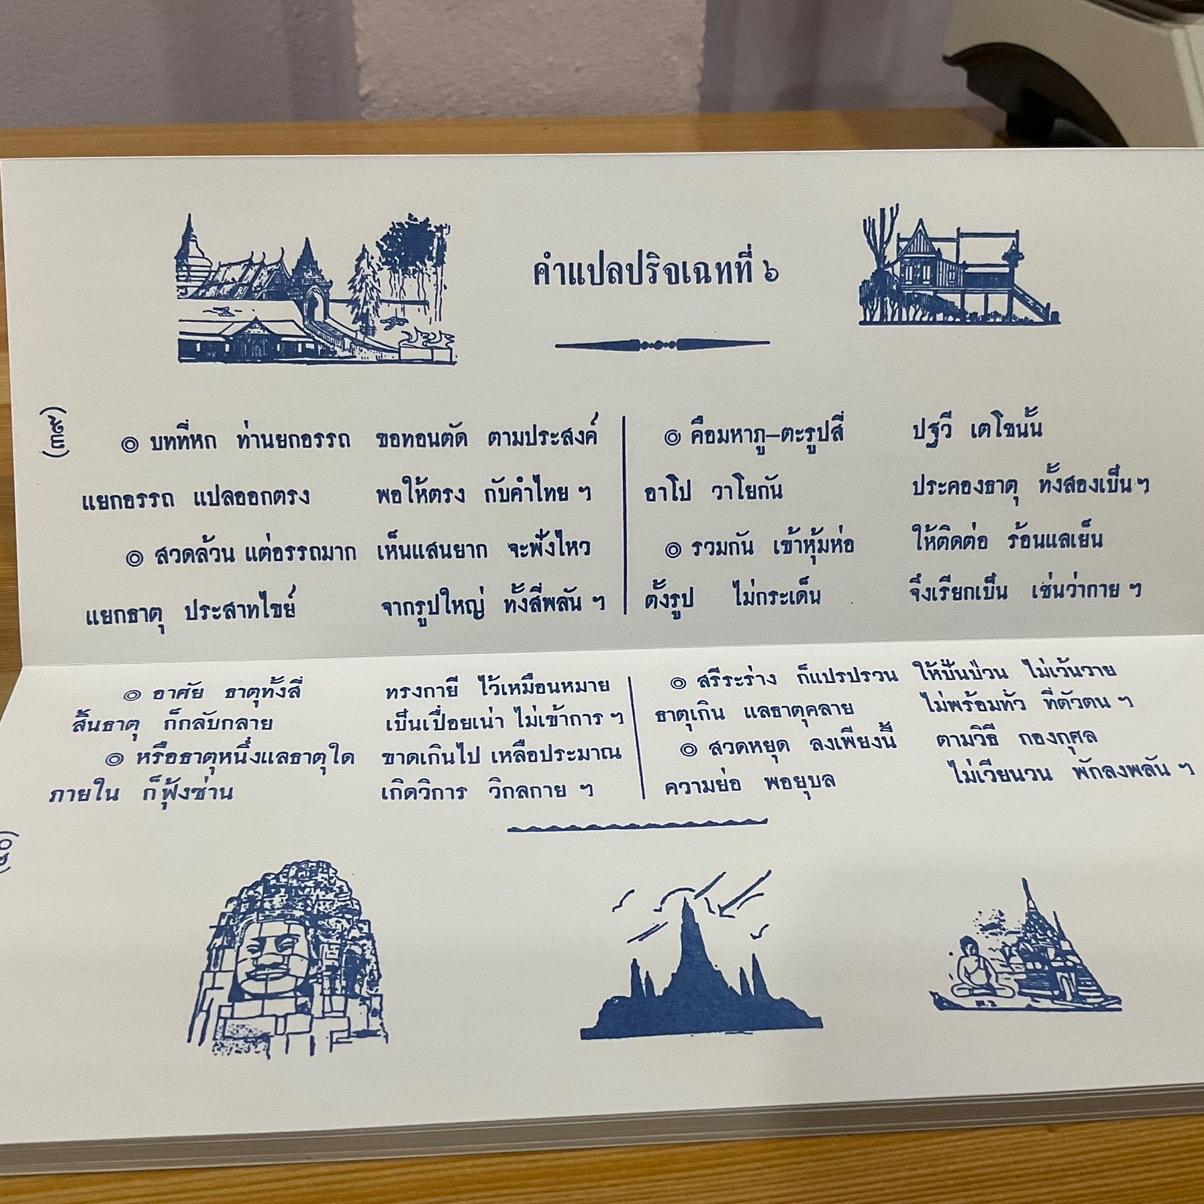 คำแปลปริจเฉทที่ ๖
(๓๙)
๏ บทที่หก ท่านยกอรรถ ขอทอนตัด ตามประสงค์
แยกอรรถ แปลออกตรง พอให้ตรง กับคำไทย ฯ
๏ สวดล้วน แต่อรรถมาก เห็นแสนยาก จะฟังไหว
แยกธาตุ ประสาทไขย์ จากรูปใหญ่ ทั้งสี่พลัน ฯ
๏ คือมหาภู–ตะรูปสี่ ปฐวี เตโชนั้น
อาโป วาโยกัน ประคองธาตุ ทั้งสองเป็น ฯ
๏ รวมกัน เข้าหุ้มห่อ ให้ติดต่อ ร้อนแลเย็น
ตั้งรูป ไม่กระเด็น จึงเรียกเป็น เช่นว่ากาย ฯ
๏ อาศัย ธาตุทั้งสี่ ทรงกายี ไว้เหมือนหมาย
สิ้นธาตุ ก็กลับกลาย เป็นเปื่อยเน่า ไม่เข้าการ ฯ
๏ หรือธาตุหนึ่งแลธาตุใด ขาดเกินไป เหลือประมาณ
ภายใน ก็ฟุ้งซ่าน เกิดวิการ วิกลกาย ฯ
๏ สรีระร่าง ก็แปรปรวน ให้ปั่นป่วน ไม่เว้นวาย
ธาตุเกิน แลธาตุคลาย ไม่พร้อมทั่ว ที่ตัวตน ฯ
๏ สวดหยุด ลงเพียงนี้ ตามวิธี กองกุศล
ความย่อ พอยุบล ไม่เวียนวน พักลงพลัน ฯ